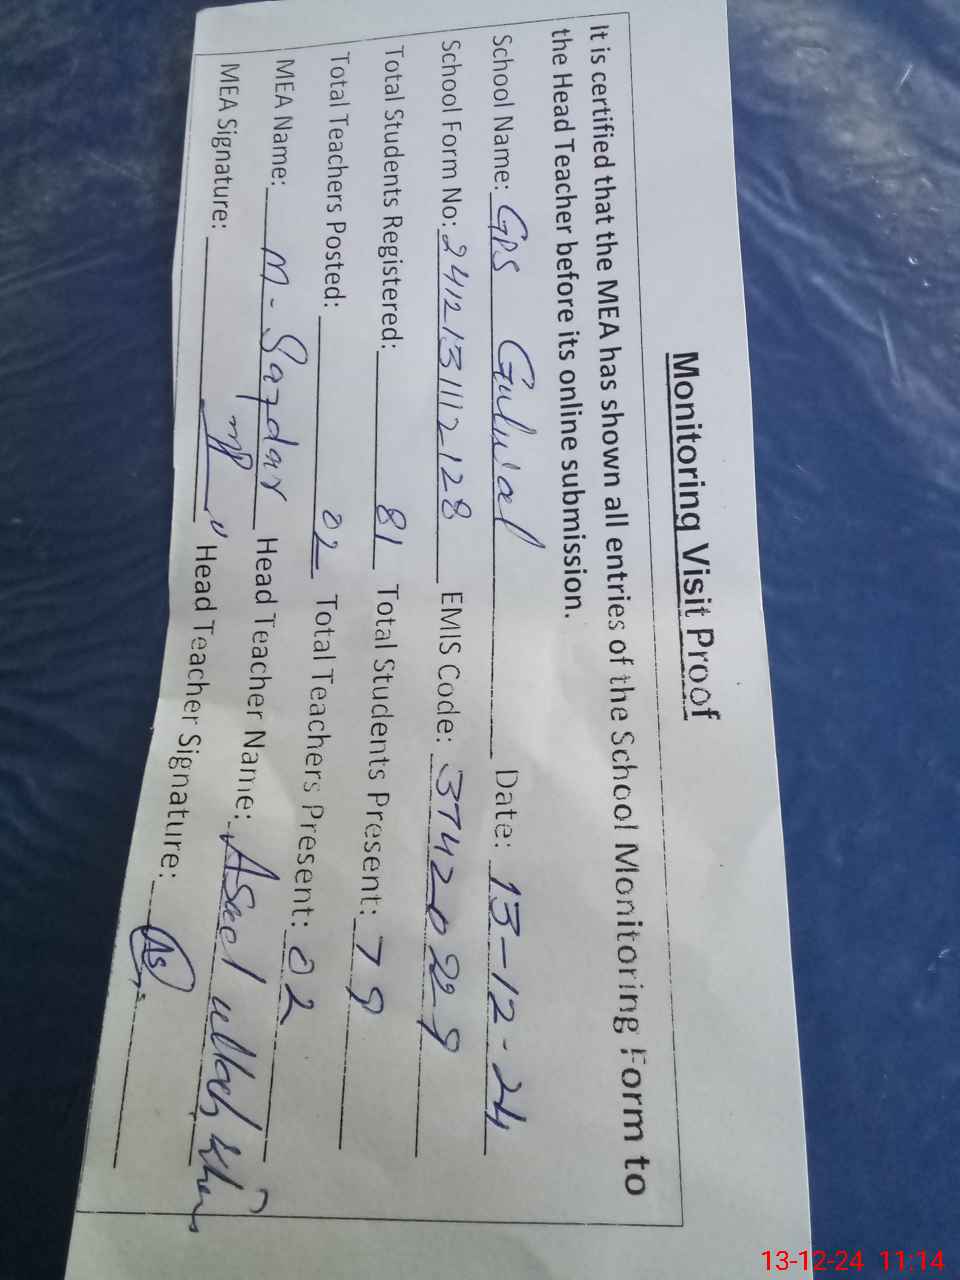 Monitoring Visit Proof
It is certified that the MEA has shown all entries of the School Monitoring Form to
the Head Teacher before its online submission.
School Name: GPS Date: 13-12-24
School Form No: 2412131112128 EMIS Code:
Total Students Registered: 81 Total Students Present: 79
Total Teachers Posted: 02 Total Teachers Present: 02
MEA Name: M- Safdar Head Teacher Name: ullah Khan
MEA Signature: Head Teacher Signature:
13-12-24 11:14